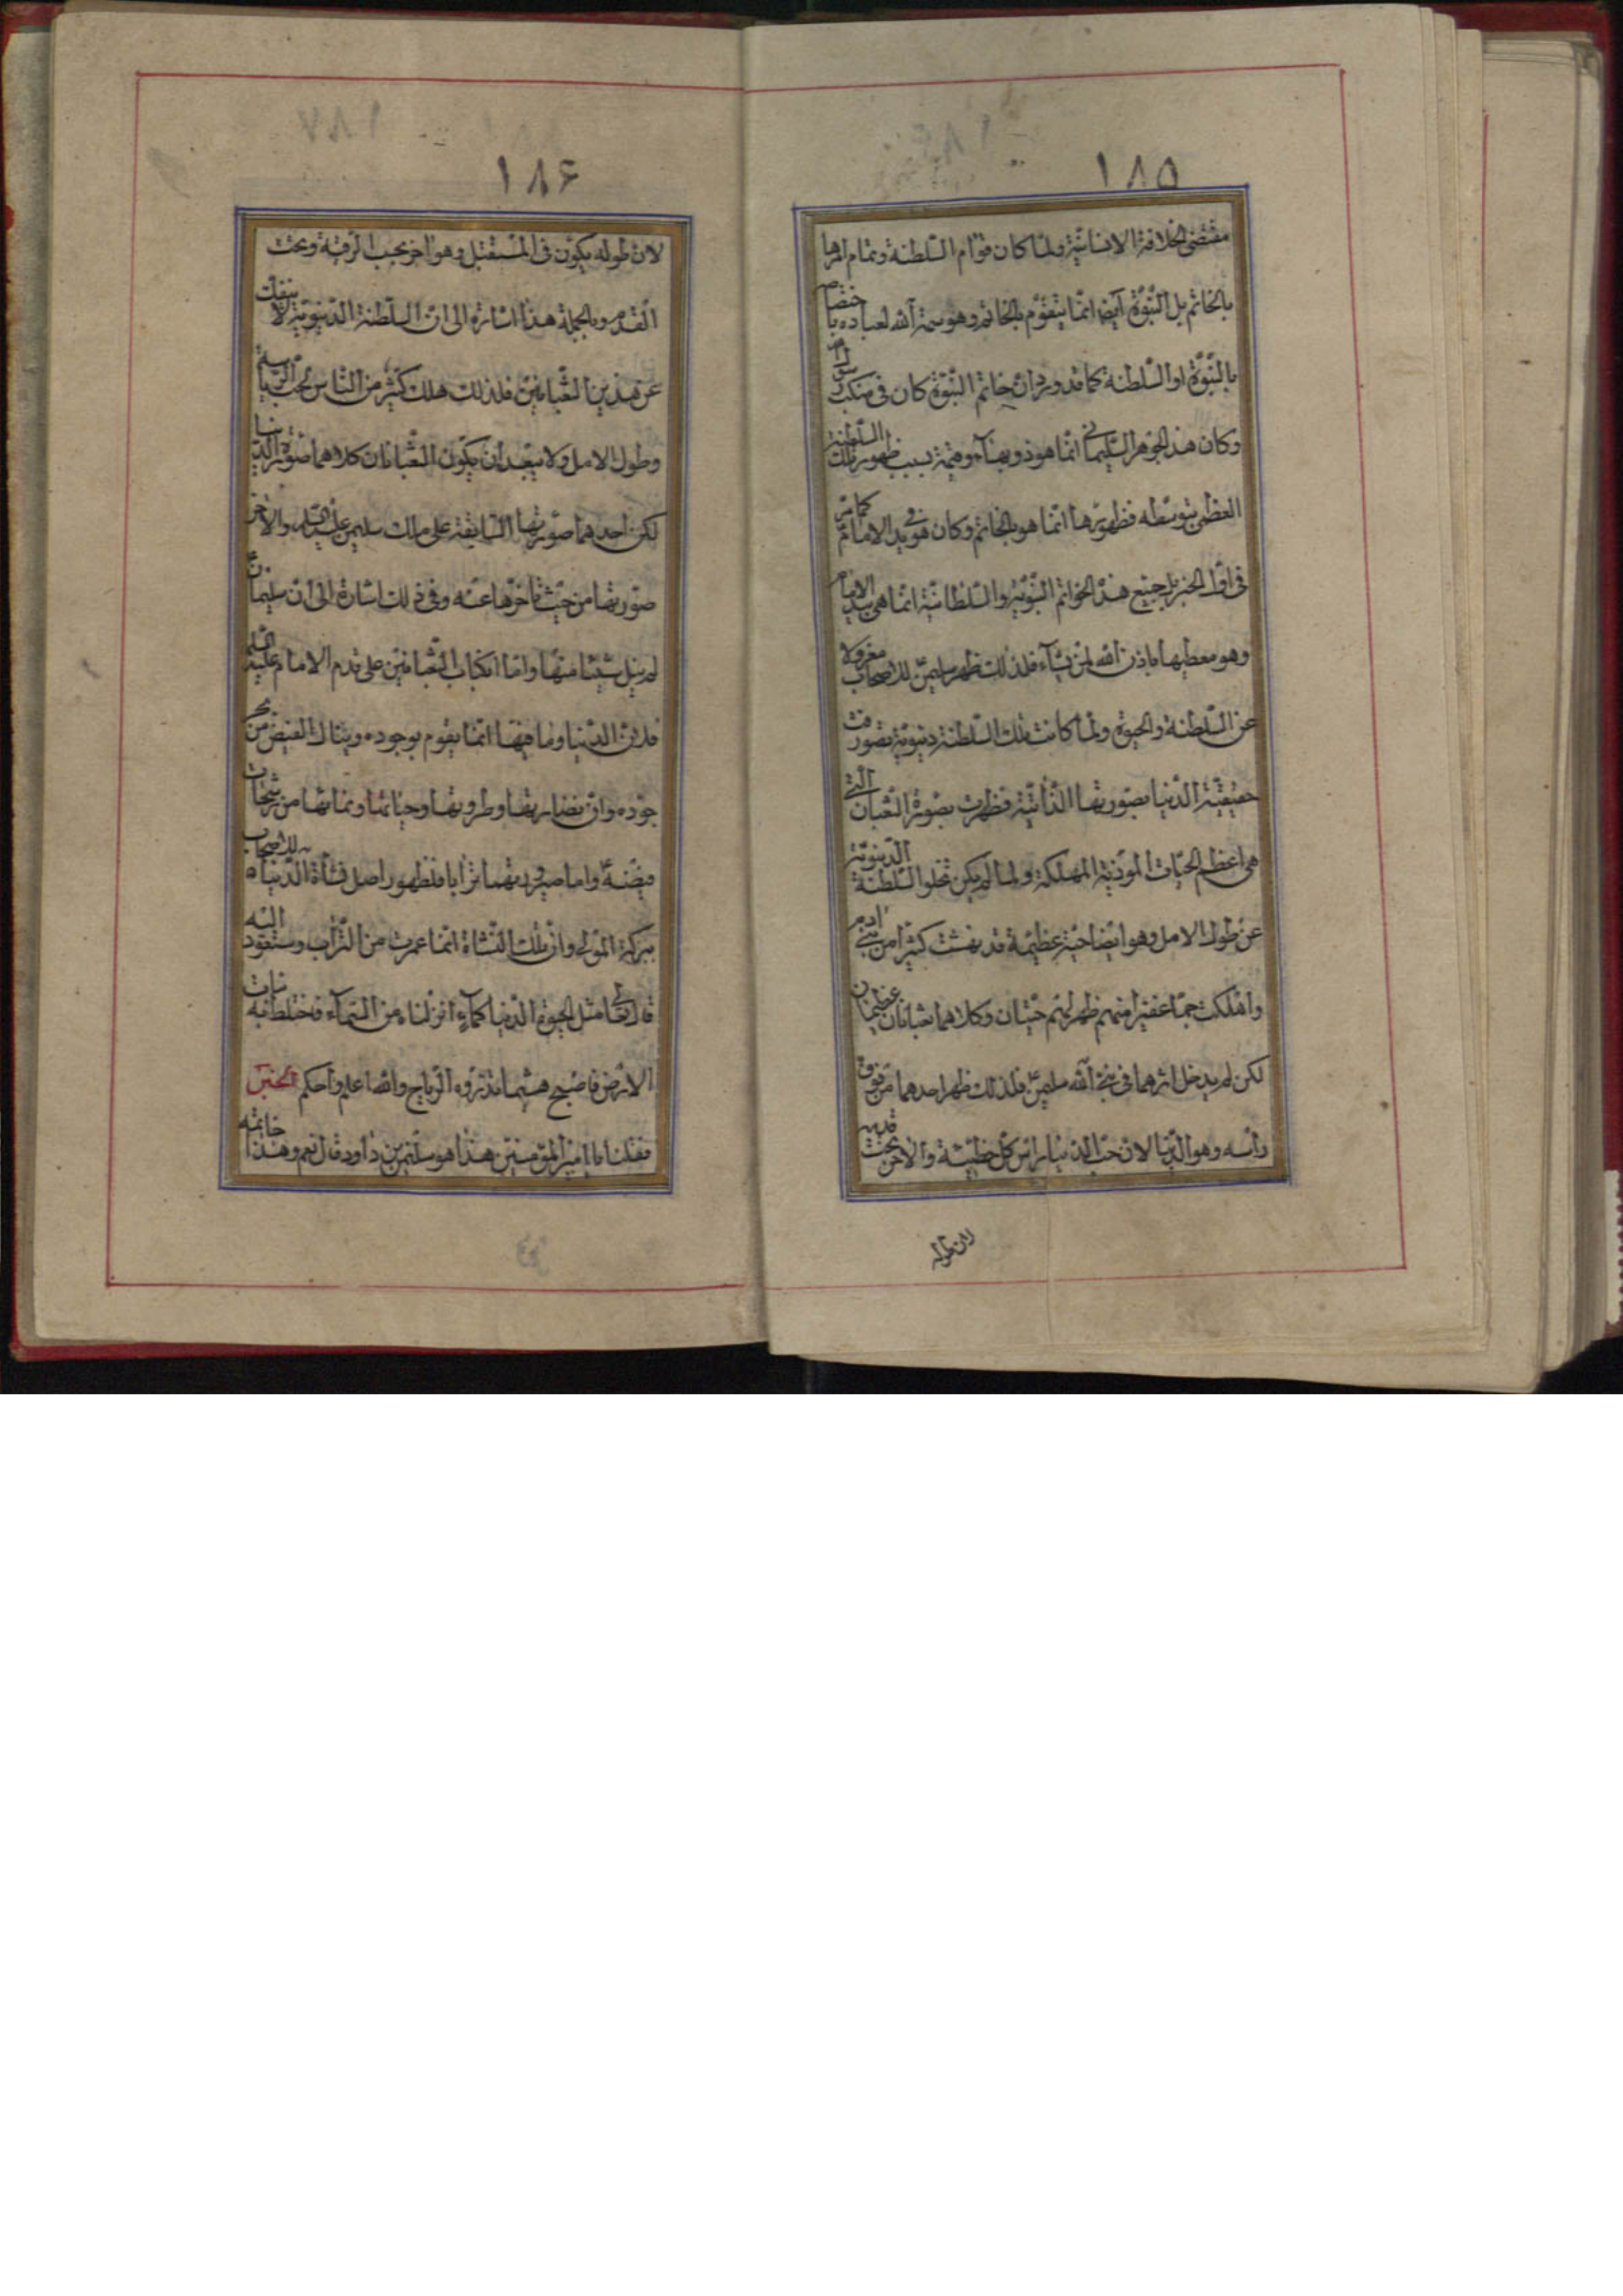 ١٨٥
مقتضى الخلافة الانسانيّة ولمّا كان قوام السّلطنة وتمام امرها
بالخاتم بل النّبوّة أيضا انّما يتقوّم بالخاتم وهو سمة اللّه لعباده باختصاصهم
بالنّبوّة او السّلطنة كما قد ورد انّ خاتم النّبوّة كان في منكب رسول
وكان هذا الجوهر السّليماني انّما هو ذو بهآء وقيمة بسبب ظهور تلك السّلطنة
العظمى بتوسّطه فظهورها انّما هو بالخاتم وكان هو في يد الامام كما مرّ
في اوّل الخبر بل جميع هذه الخواتم النّبويّة والسّلطانيّة انّما هي بيد الامام
وهو معطيها باذن اللّه لمن يشآء فلذلك ظهر سليمن للاصحاب معزولا
عن السّلطنة والحيوة ولمّا كانت تلك السّلطنة دنيويّة تصوّرت
حقيقيّة الدّنيا بصورتها الذّاتيّة فظهرت بصورة الثّعبان الّتي
هي اعظم الحيّات الموذية المهلكة ولمّا لم يكن تخلو السّلطنة الدّنيويّة
عن طول الامل وهو ايضا حيّة عظيمة قد نهشت كثيرا من بني آدم
واهلكت جمّا غفيرا منهم ظهر لهم حيّتان وكلاهما ثعبانان عظيمان
لكن لم يدخل اثرهما في بنيّ اللّه سليمن فلذلك ظهر احدهما من فوق
رأسه وهو الدّنيا لانّ حبّ الدّنيا راس كلّ خطيئة والآخر تحت قدمه
لان طوله
١٨۶
لانّ طوله يكون في المستقبل وهو آخر بحسب الرّتبة وتحت
القدم وبالجملة هذا اشارة الى انّ السّلطنة الدّنيويّة لا ينفكّ
عن هذين الثّعبانين فلذلك هلك كثير من النّاس بحبّ الرّياسة
وطول الامل ولا يبعد أن يكون الثّعبانان كلاهما صورة الدّنيا
لكن احدهما صورتها السّابقة على ملك سليمن عليه السّلم والآخر
صورتها من حيث تأخّرها عنه وفي ذلك اشارة الى أن سليمان
لم ينل شيئا منها وامّا انكباب الثّعبانين على قدم الامام عليه السّلم
فلانّ الدّنيا وما فيها انّما يقوم بوجوده وينال الفيض من بحر
جوده وانّ نضارتها وطروبتها وحياتها ونمائها من رشحات
فيضه وامّا صيرورتهما ترابا فلظهور اصل نشأة الدّنيا للاصحاب
ببركة المولى وانّ تلك النّشأة انّما عمرت من التّراب وستعود اليه
قال تعالى مثل الحيوة الدّنيا كمآء انزلناه من السّمآء فاختلط به نبات
الارض فاصبح هشيما تذروه الرّياح واللّه اعلم واحكم الخبر
فقلنا يا امير المؤمنين هذا هو سليمن بن داود قال نعم وهذا خاتمه